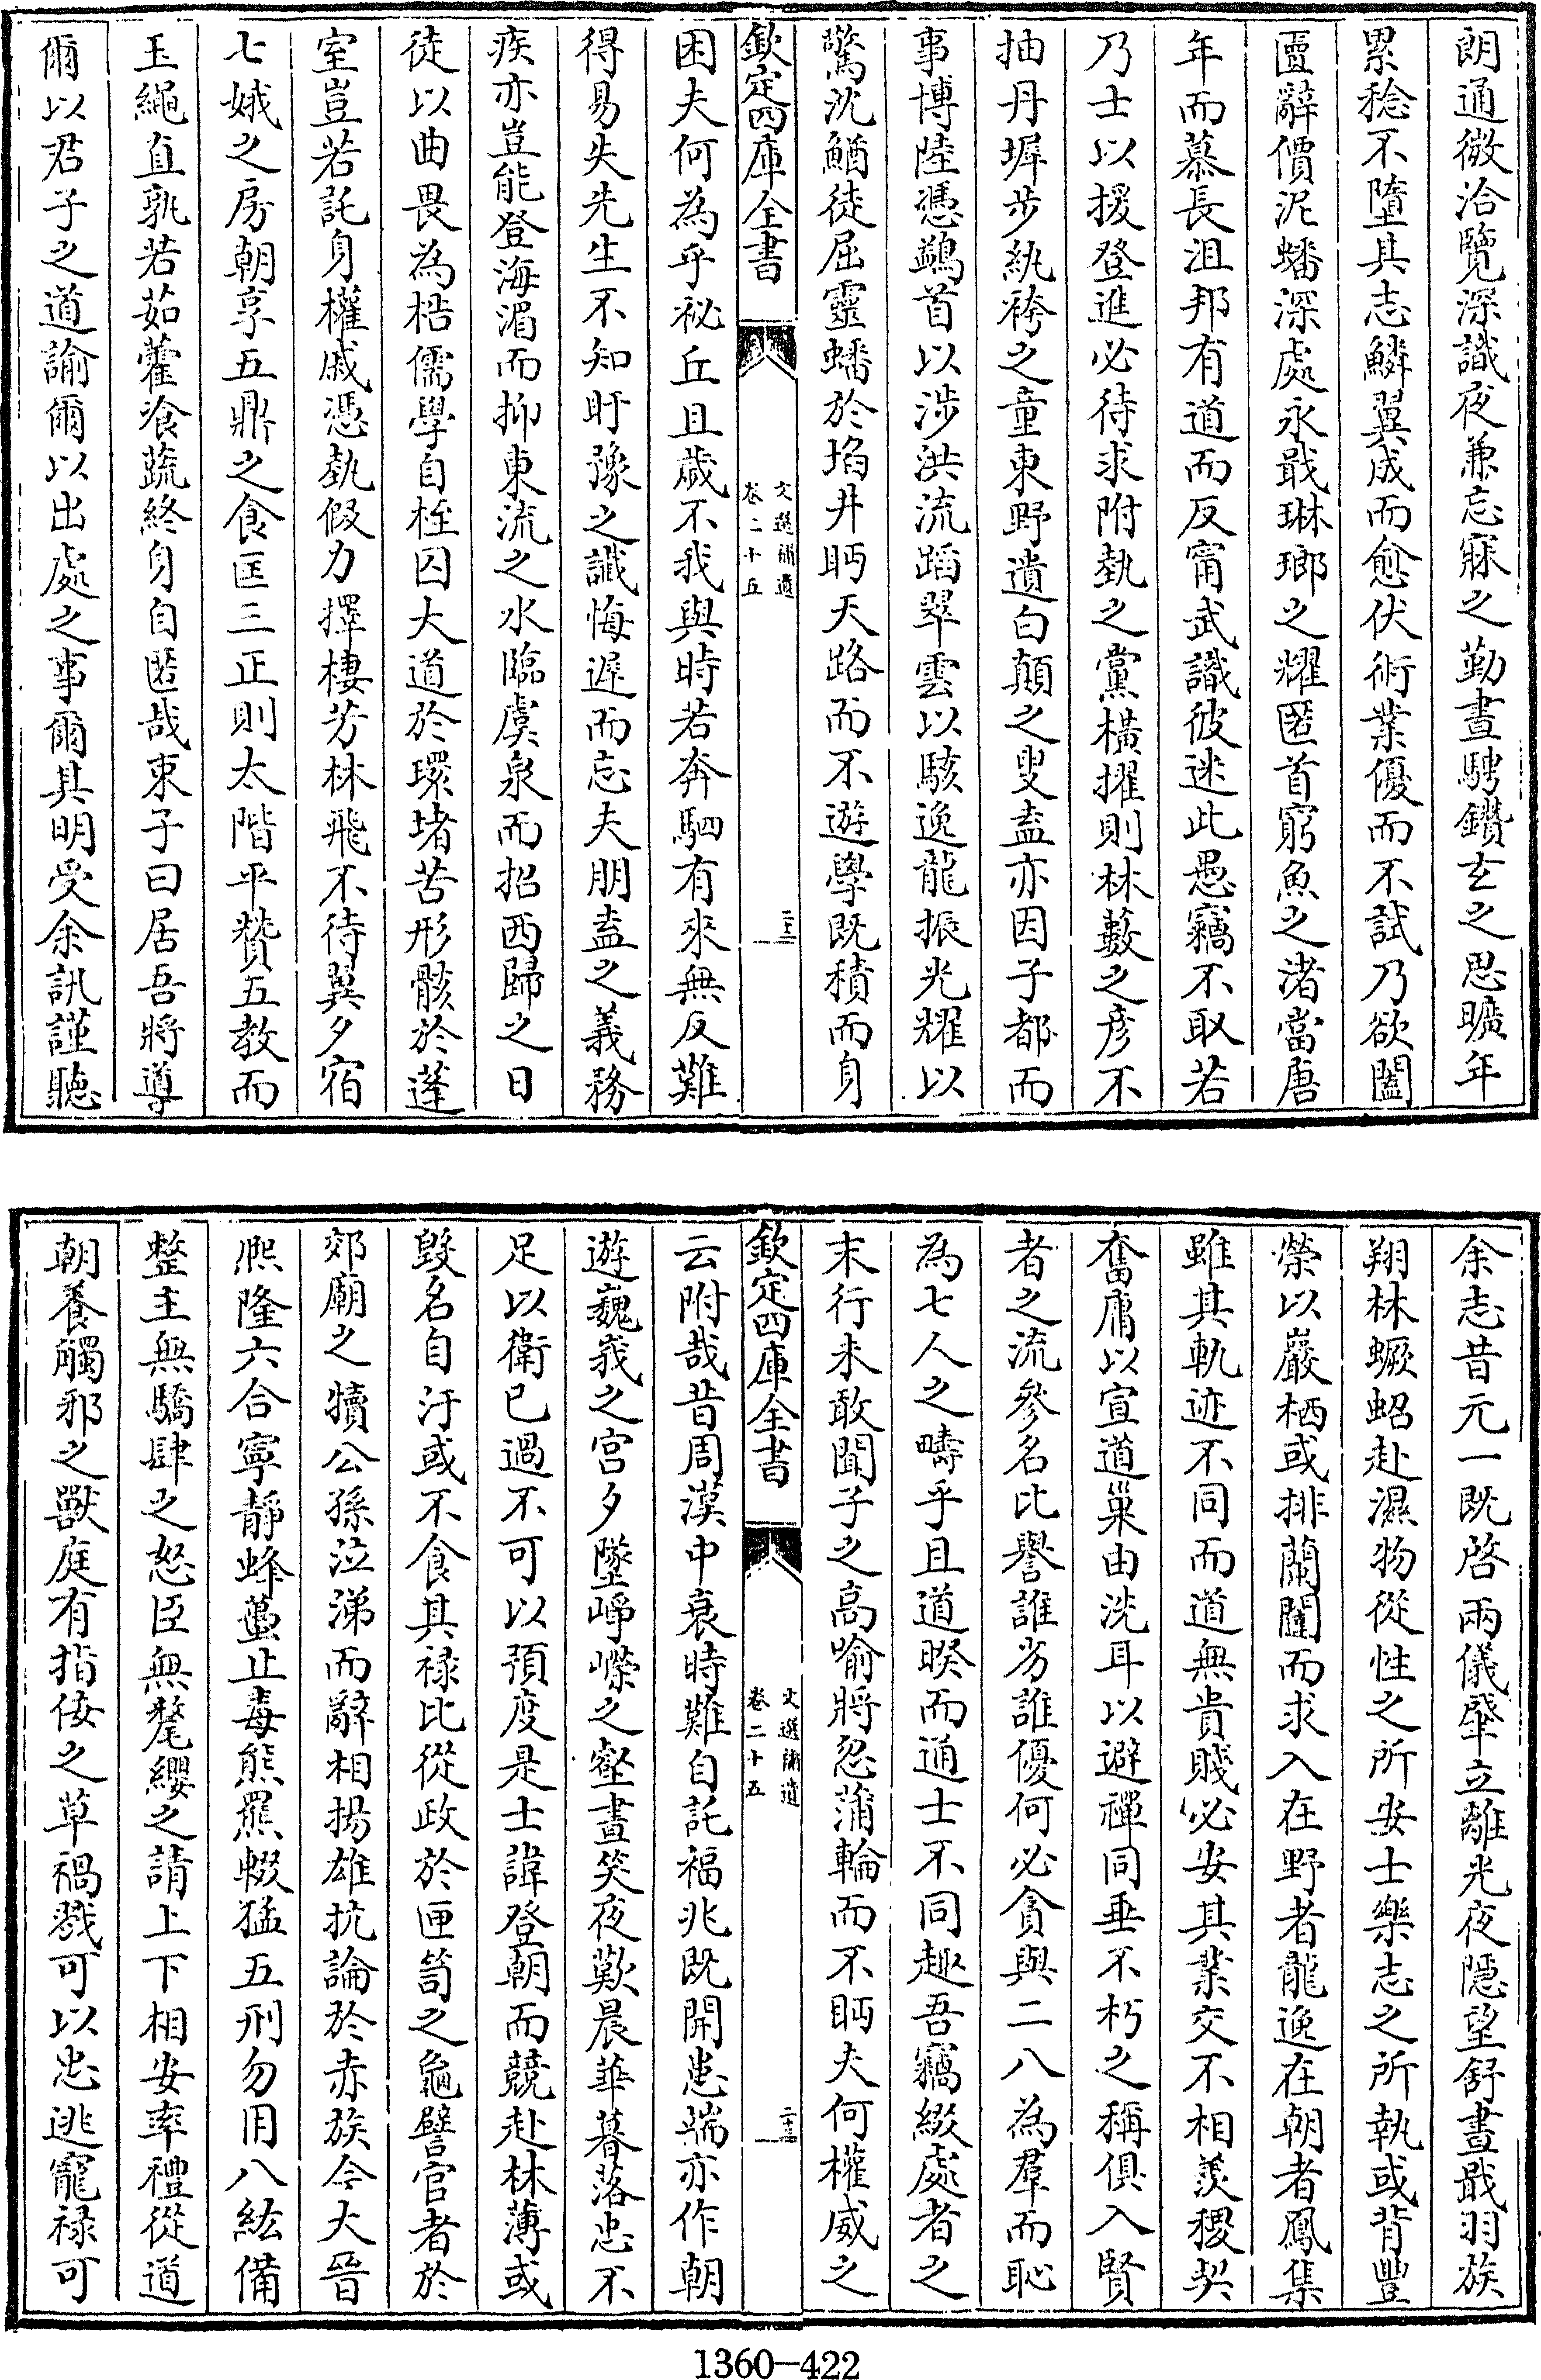 朗通微洽覽深識夜兼忘寐之勤晝騁鑽玄之思曠年
累稔不墮其志鱗翼成而愈伏術業優而不試乃欲闔
匵辭價泥蟠深處永戢琳瑯之耀匿首窮魚之渚當唐
年而慕長沮邦有道而反甯武識彼迷此愚竊不取若
乃士以援登進必待求附埶之黨橫擢則林藪之彥不
抽丹墀步紈袴之童東野遺白顛之叟盍亦因子都而
事博陸憑鷁首以涉洪流蹈翠雲以駭逸龍振光耀以
驚沈鰌徒屈靈蟠於坎井眄天路而不遊學既積而身
欽定四庫全書
文選補遺
卷二十五
二十二
困夫何為乎祕丘且歲不我與時若奔駟有來無反難
得易失先生不知盱豫之讖悔遲而忘夫朋盍之義務
疾亦豈能登海湄而抑東流之水臨虞泉而招西歸之日
徒以曲畏為梏儒學自桎囚大道於環堵苦形骸於蓬
室豈若託身權戚憑埶假力擇棲芳林飛不待翼夕宿
七娥之房朝享五鼎之食匡三正則太階平贊五教而
玉繩直孰若茹藿飡蔬終身自匿哉束子曰居吾將導
爾以君子之道諭爾以出處之事爾其明受余訊謹聽
余志昔元一既啓兩儀肇立離光夜隱望舒晝戢羽族
翔林蟩蛁赴濕物從性之所安士樂志之所執或背豐
榮以巖栖或排蘭闥而求入在野者龍逸在朝者鳳集
雖其軌迹不同而道無貴賤必安其業交不相羨稷契
奮庸以宣道巢由洗耳以避禪同垂不朽之稱俱入賢
者之流參名比譽誰劣誰優何必貪與二八為羣而恥
為七人之疇乎且道睽而通士不同趣吾竊綴處者之
末行未敢聞子之高喻將忽蒲輪而不眄夫何權威之
欽定四庫全書
文選補遺
卷二十五
二十三
云附哉昔周漢中衰時難自託福兆既開患端亦作朝
遊巍峩之宮夕墜崢嶸之壑晝笑夜歎晨華暮落忠不
足以衛已過不可以預度是士諱登朝而競赴林薄或
毀名自汙或不食其祿比從政於匣笥之龜譬官者於
郊廟之犢公孫泣涕而辭相揚雄抗論於赤族今大晉
熙隆六合寧靜蜂蠆止毒熊羆輟猛五刑勿用八紘備
整主無驕肆之怒臣無氂纓之請上下相安率禮從道
朝養觸邪之獸庭有指佞之草禍戮可以忠逃寵祿可
1360-422